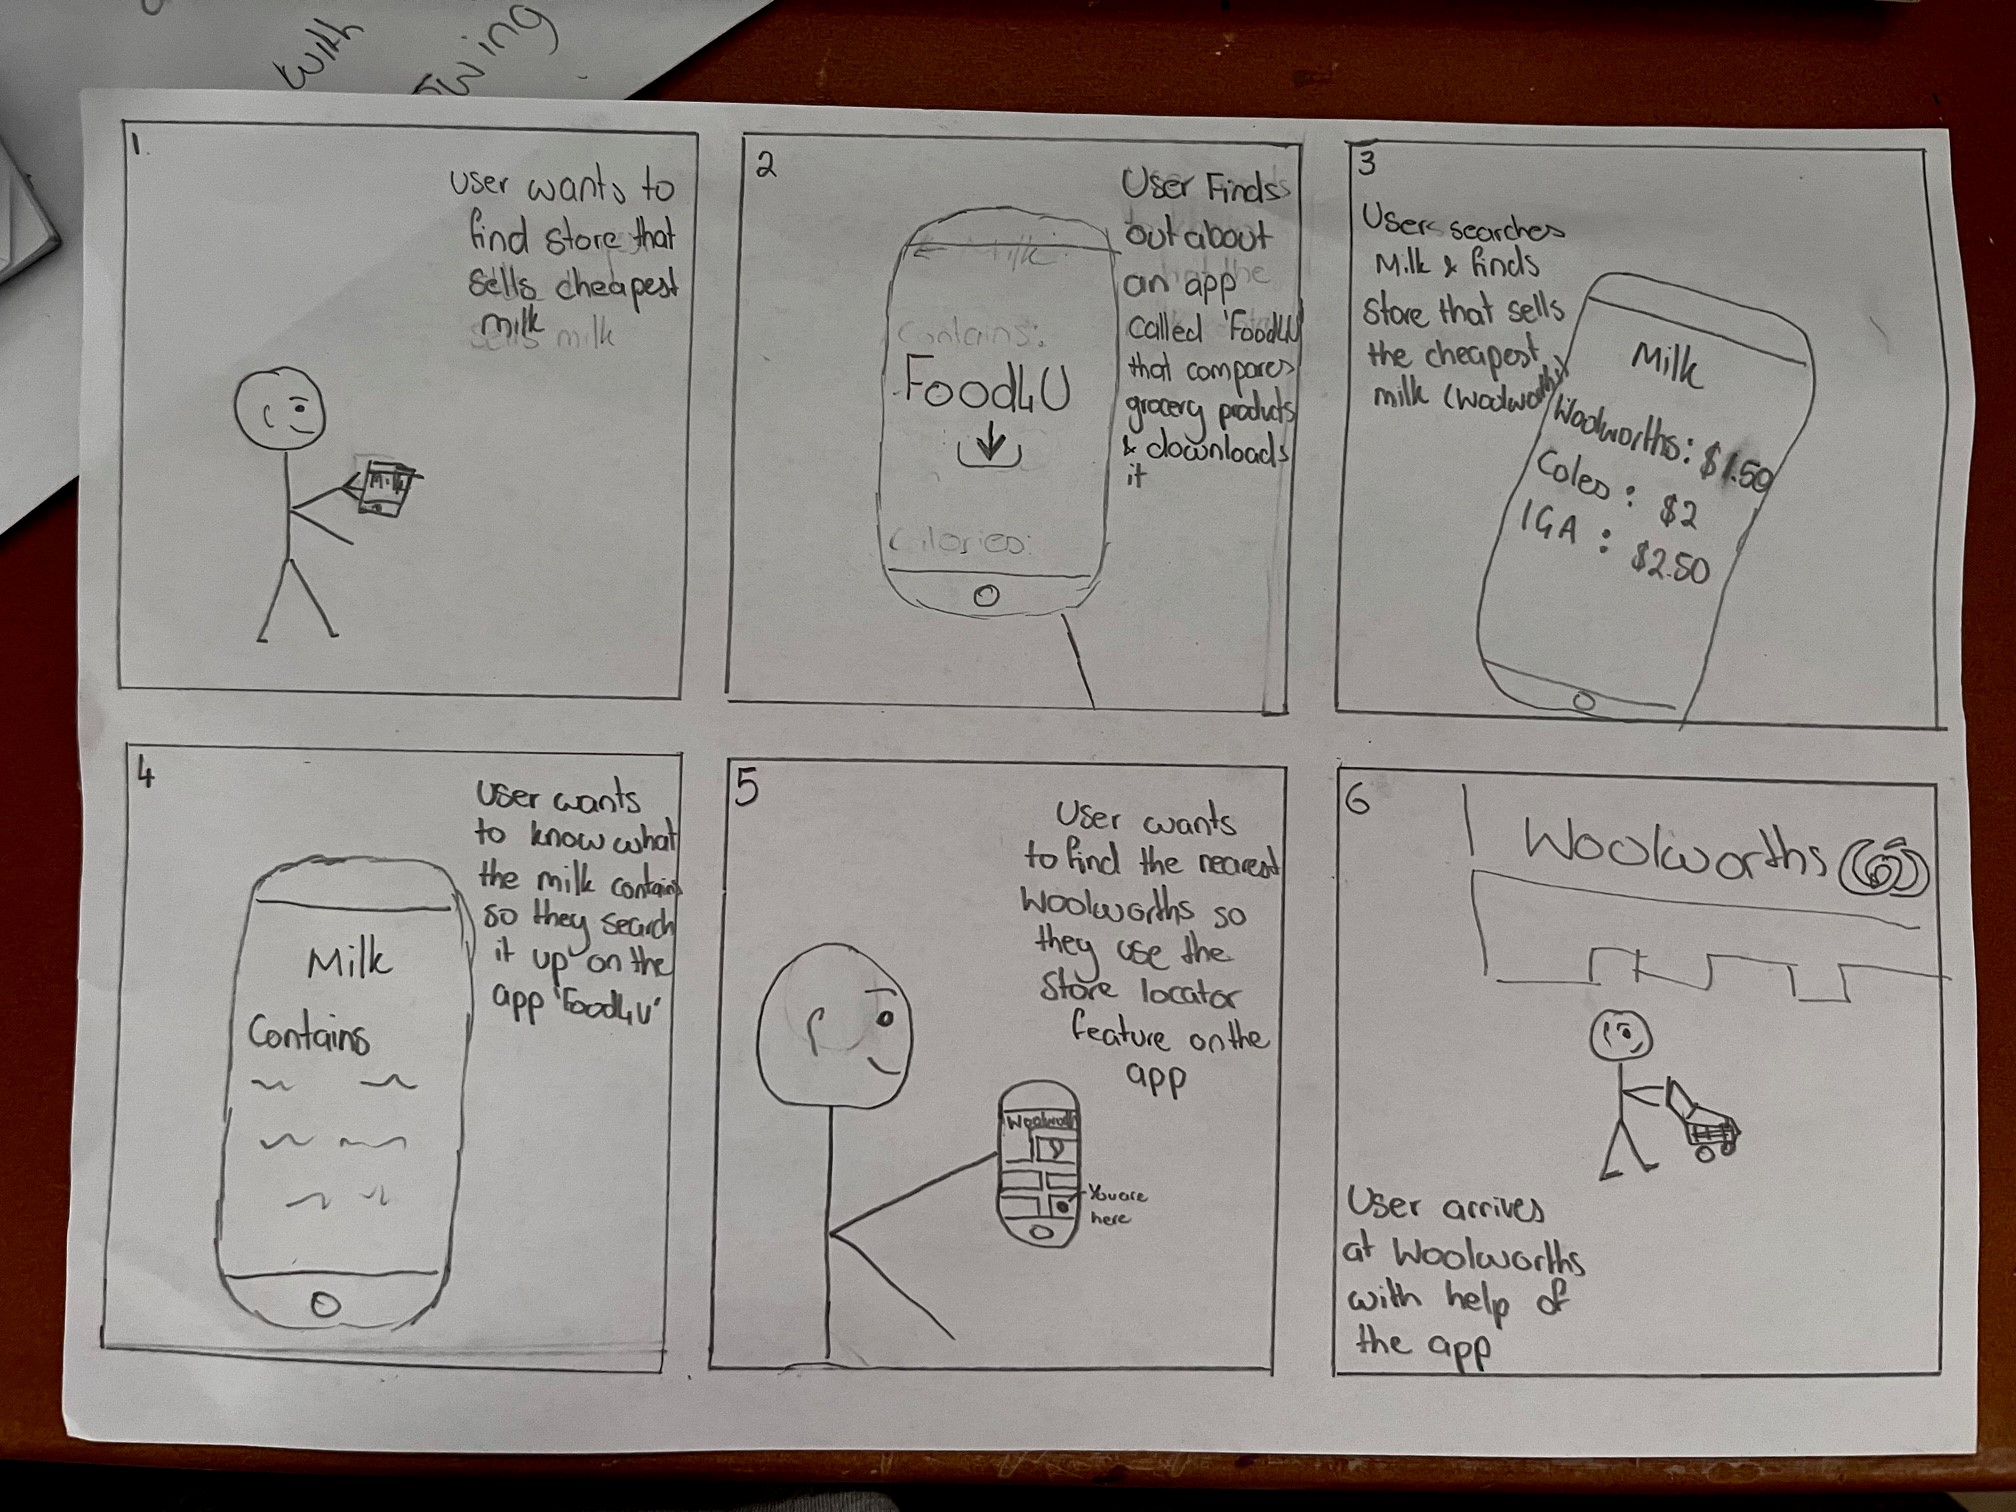 with
1.
User wants to
find store that
sells cheapest
milk
sells milk
Milk
2
User Finds
out about
an app
called 'Food4U'
that compares
grocery products
& downloads
it
Milk:
Contains:
Food4U
Calories:
3
User searches
Milk & finds
store that sells
the cheapest
milk (Woolworths)
Milk
Woolworths: $1.50
Coles : $2
IGA : $2.50
4
User wants
to know what
the milk contains
so they search
it up on the
app 'Food4U'
Milk
Contains
5
User wants
to find the nearest
Woolworths so
they use the
Store locator
feature on the
app
Woolworths
You are
here
6
Woolworths
User arrives
at Woolworths
with help of
the app